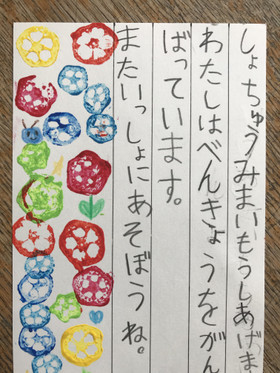 しょちゅうみまいもうしあげま
わたしはべんきょうをがん
ばっています。
またいっしょにあそぼうね。